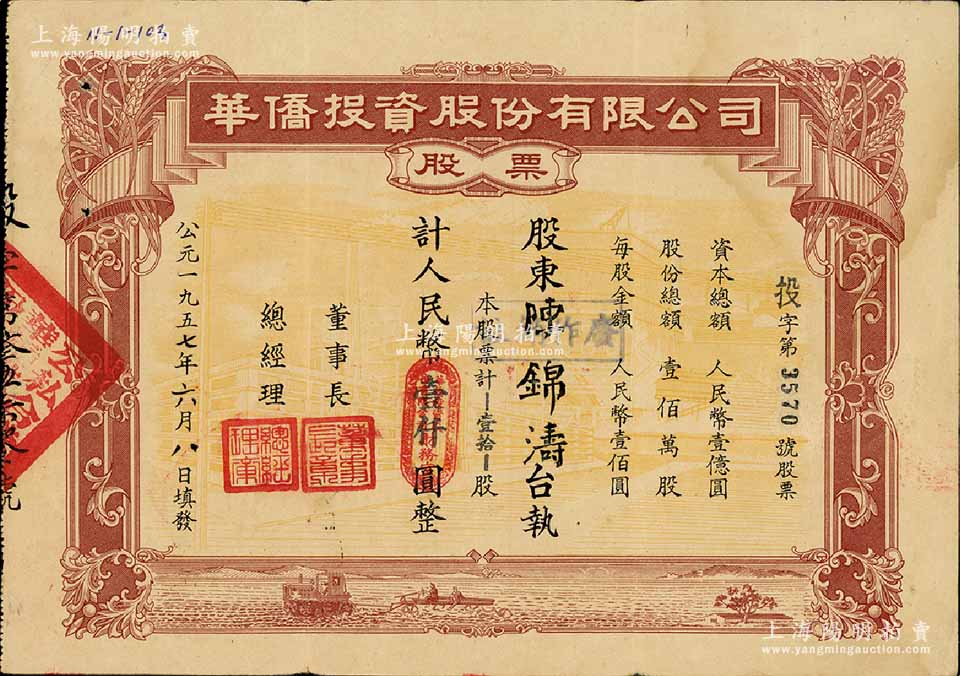 上海陽明拍賣
www.yangmingauction.com
上海陽明拍賣
華僑投資股份有限公司
股票
投字第 3570 號股票
資本總額　人民幣壹億圓
股份總額　壹佰萬股
每股金額　人民幣壹佰圓
股東陳錦濤台執
本股票計 壹拾 股
計人民幣壹仟圓整
董事長
總經理
公元一九五七年六月八日填發
上海陽明拍賣
www.yangmingauction.com
上海陽明拍賣
www.yangmingauction.com